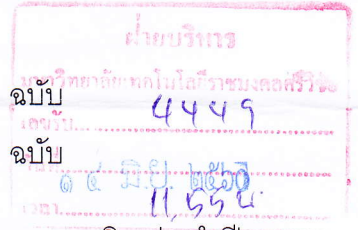 ฝ่ายบริหาร
มหาวิทยาลัยเทคโนโลยีราชมงคลศรีวิชัย
ฉบับ
เลขรับ.......... 4449
ฉบับ
๑ ๔ มิ.ย. ๒๕๖๐
เวลา.......... 11,55 น.